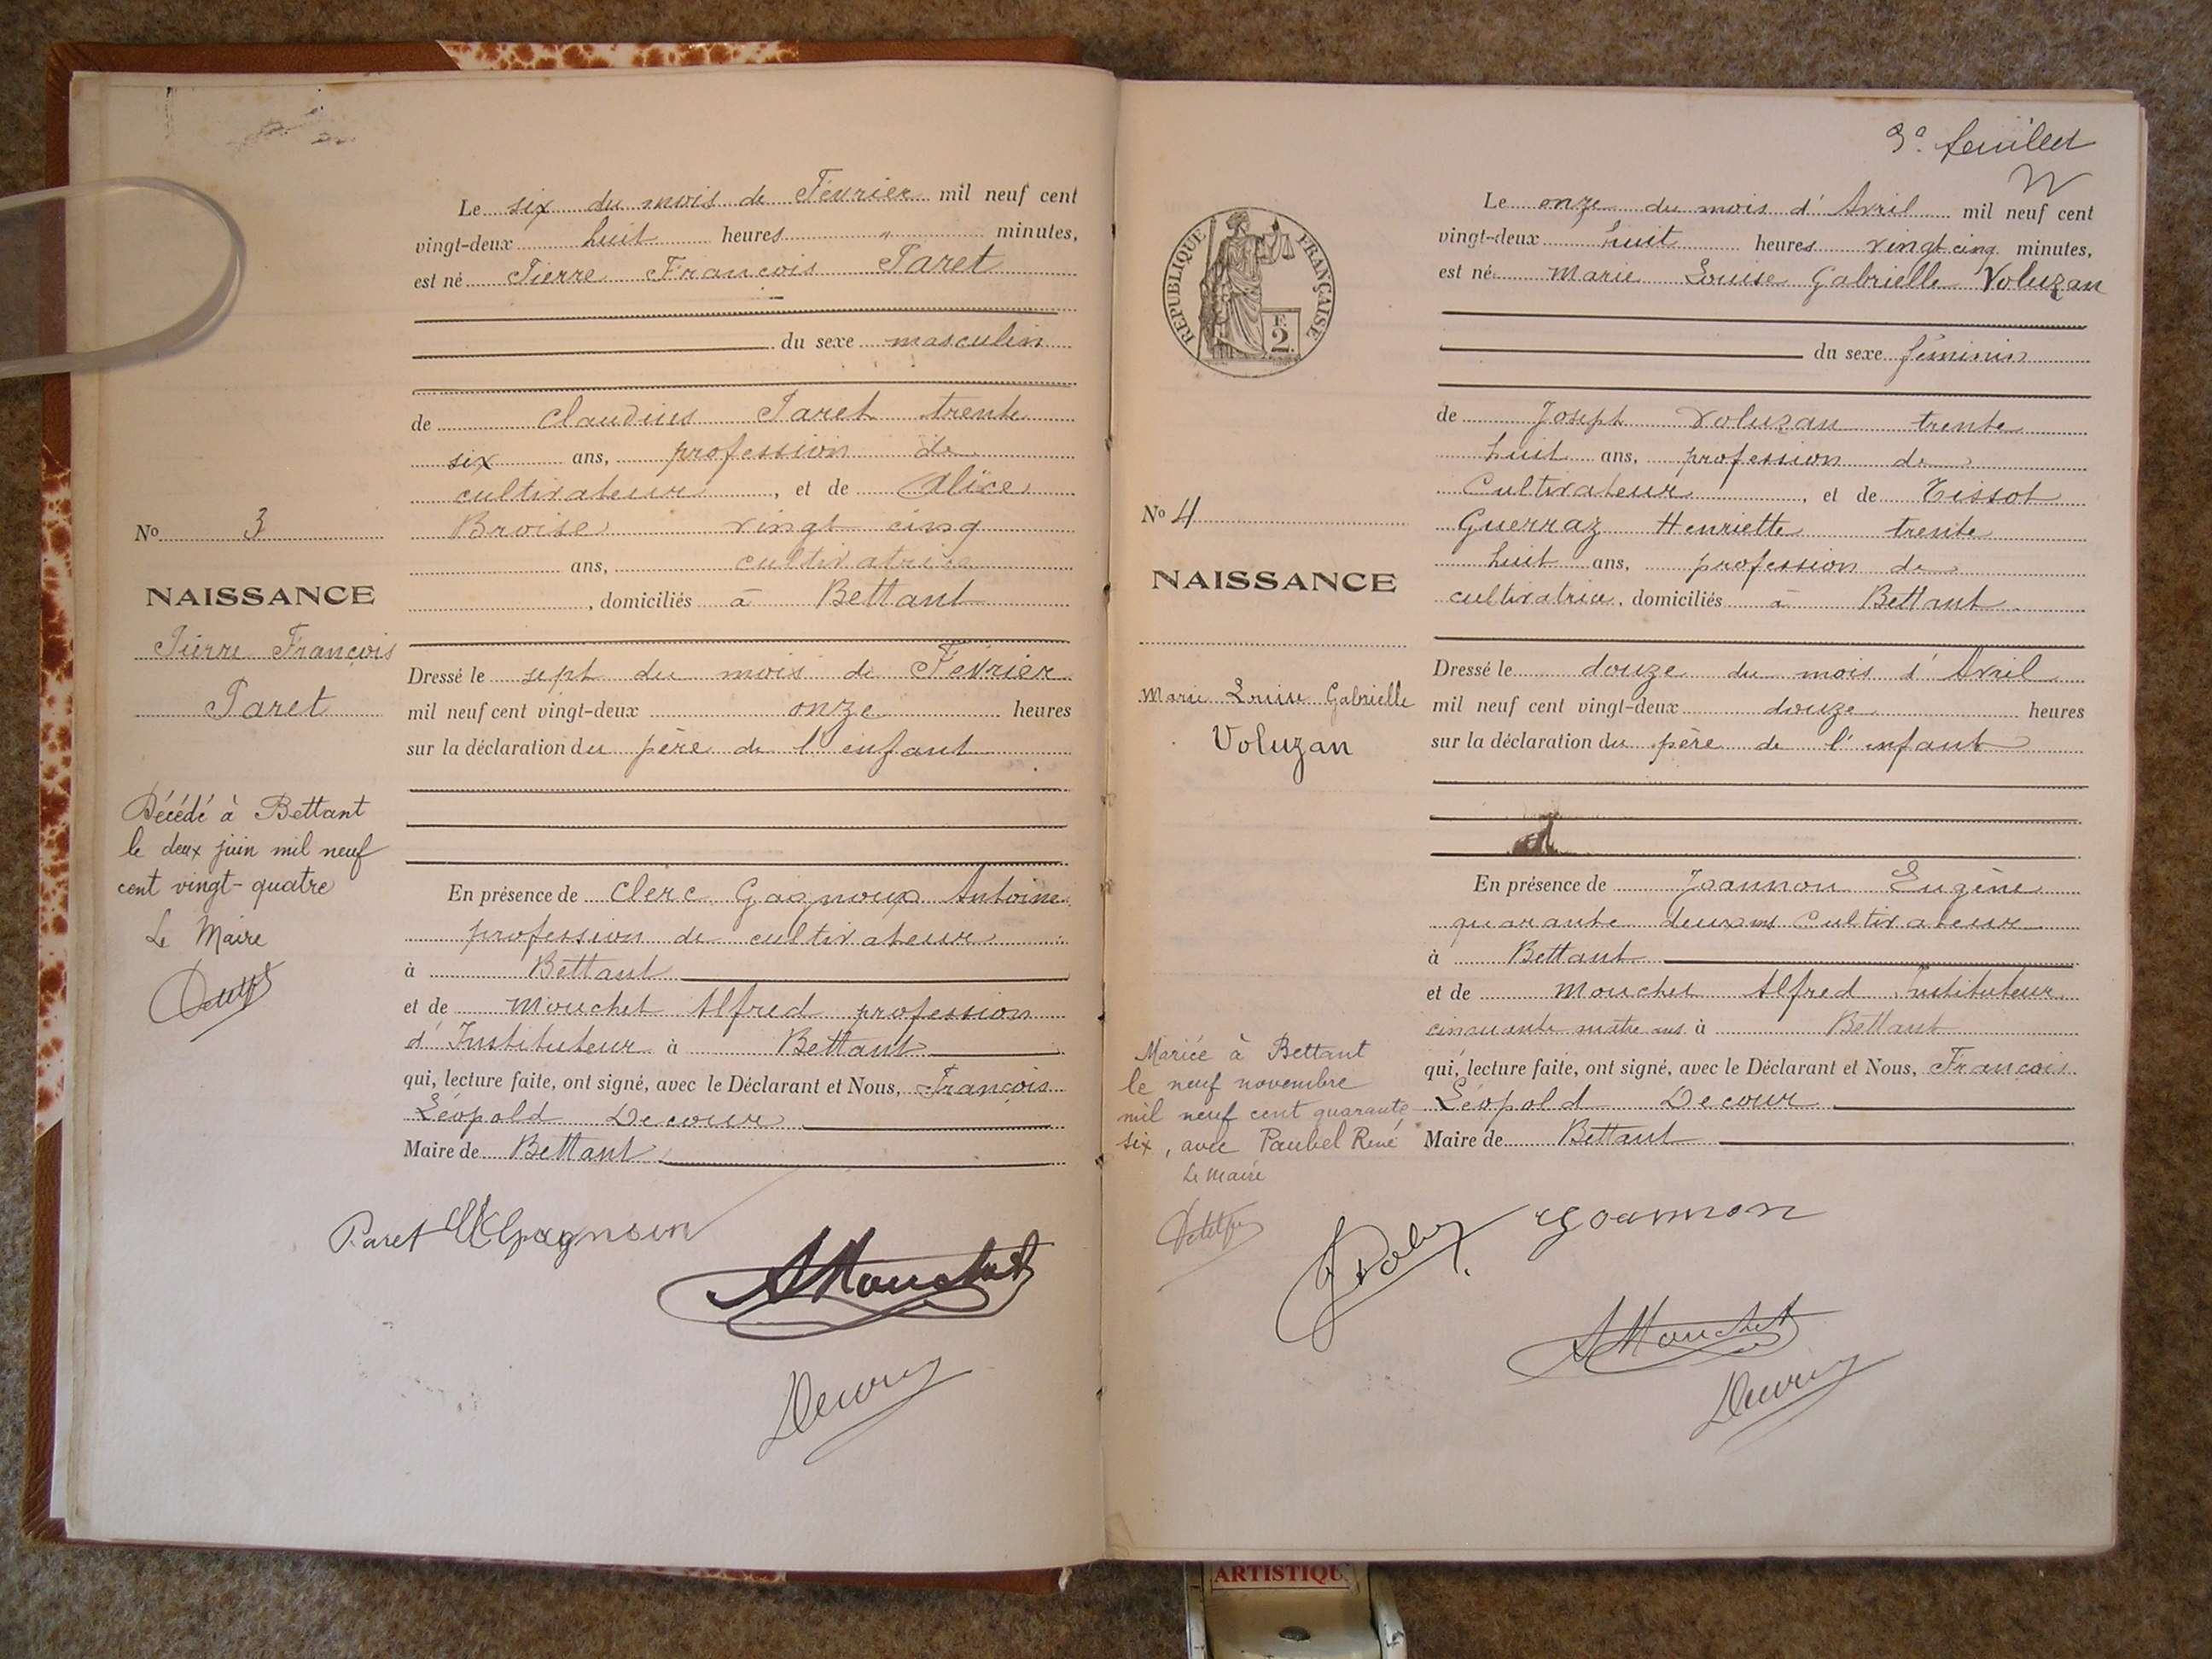 Le six du mois de Février mil neuf cent
vingt-deux huit heures " minutes,
est né Pierre François Paret
du sexe masculin
de Claudius Paret trente
six ans, profession de
cultivateur, et de Alice
Broise vingt cinq
ans, cultivatrice
, domiciliés à Bettant
Dressé le sept du mois de Février
mil neuf cent vingt-deux onze heures
sur la déclaration du père de l'enfant
En présence de Clerc Gagnoux Antoine
profession de cultivateur
à Bettant
et de Mouchet Alfred profession
d'Instituteur à Bettant
qui, lecture faite, ont signé, avec le Déclarant et Nous, François
Léopold Decour
Maire de Bettant
No 3
NAISSANCE
Pierre François
Paret
Décédé à Bettant
le deux juin mil neuf
cent vingt-quatre
Le Maire
Paret
AMouchet
Decour
3e feuillet
REPUBLIQUE FRANÇAISE
F.
2.
Le onze du mois d'Avril mil neuf cent
vingt-deux huit heures vingt cinq minutes,
est né Marie Louise Gabrielle Voluzan
du sexe féminin
de Joseph Voluzan trente
huit ans, profession de
Cultivateur, et de Tissot
Guerraz Henriette trente
huit ans, profession de
cultivatrice, domiciliés à Bettant
Dressé le douze du mois d'Avril
mil neuf cent vingt-deux douze heures
sur la déclaration du père de l'enfant
En présence de Joannon Eugène
quarante deux ans Cultivateur
à Bettant
et de Mouchet Alfred Instituteur
cinquante quatre ans à Bettant
qui, lecture faite, ont signé, avec le Déclarant et Nous, François
Léopold Decour
Maire de Bettant
No 4
NAISSANCE
Marie Louise Gabrielle
Voluzan
Mariée à Bettant
le neuf novembre
mil neuf cent quarante
six, avec Paubel René
Le Maire
Joannon
AMouchet
Decour
ARTISTIQU